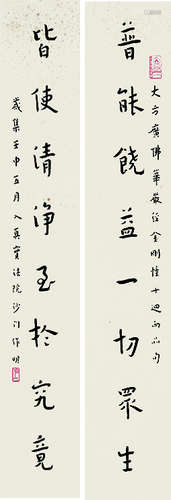 大方廣佛華嚴經金剛幢十迴向品句
普能饒益一切眾生
皆使清淨至於究竟
歲集壬申五月入真寂法院沙門